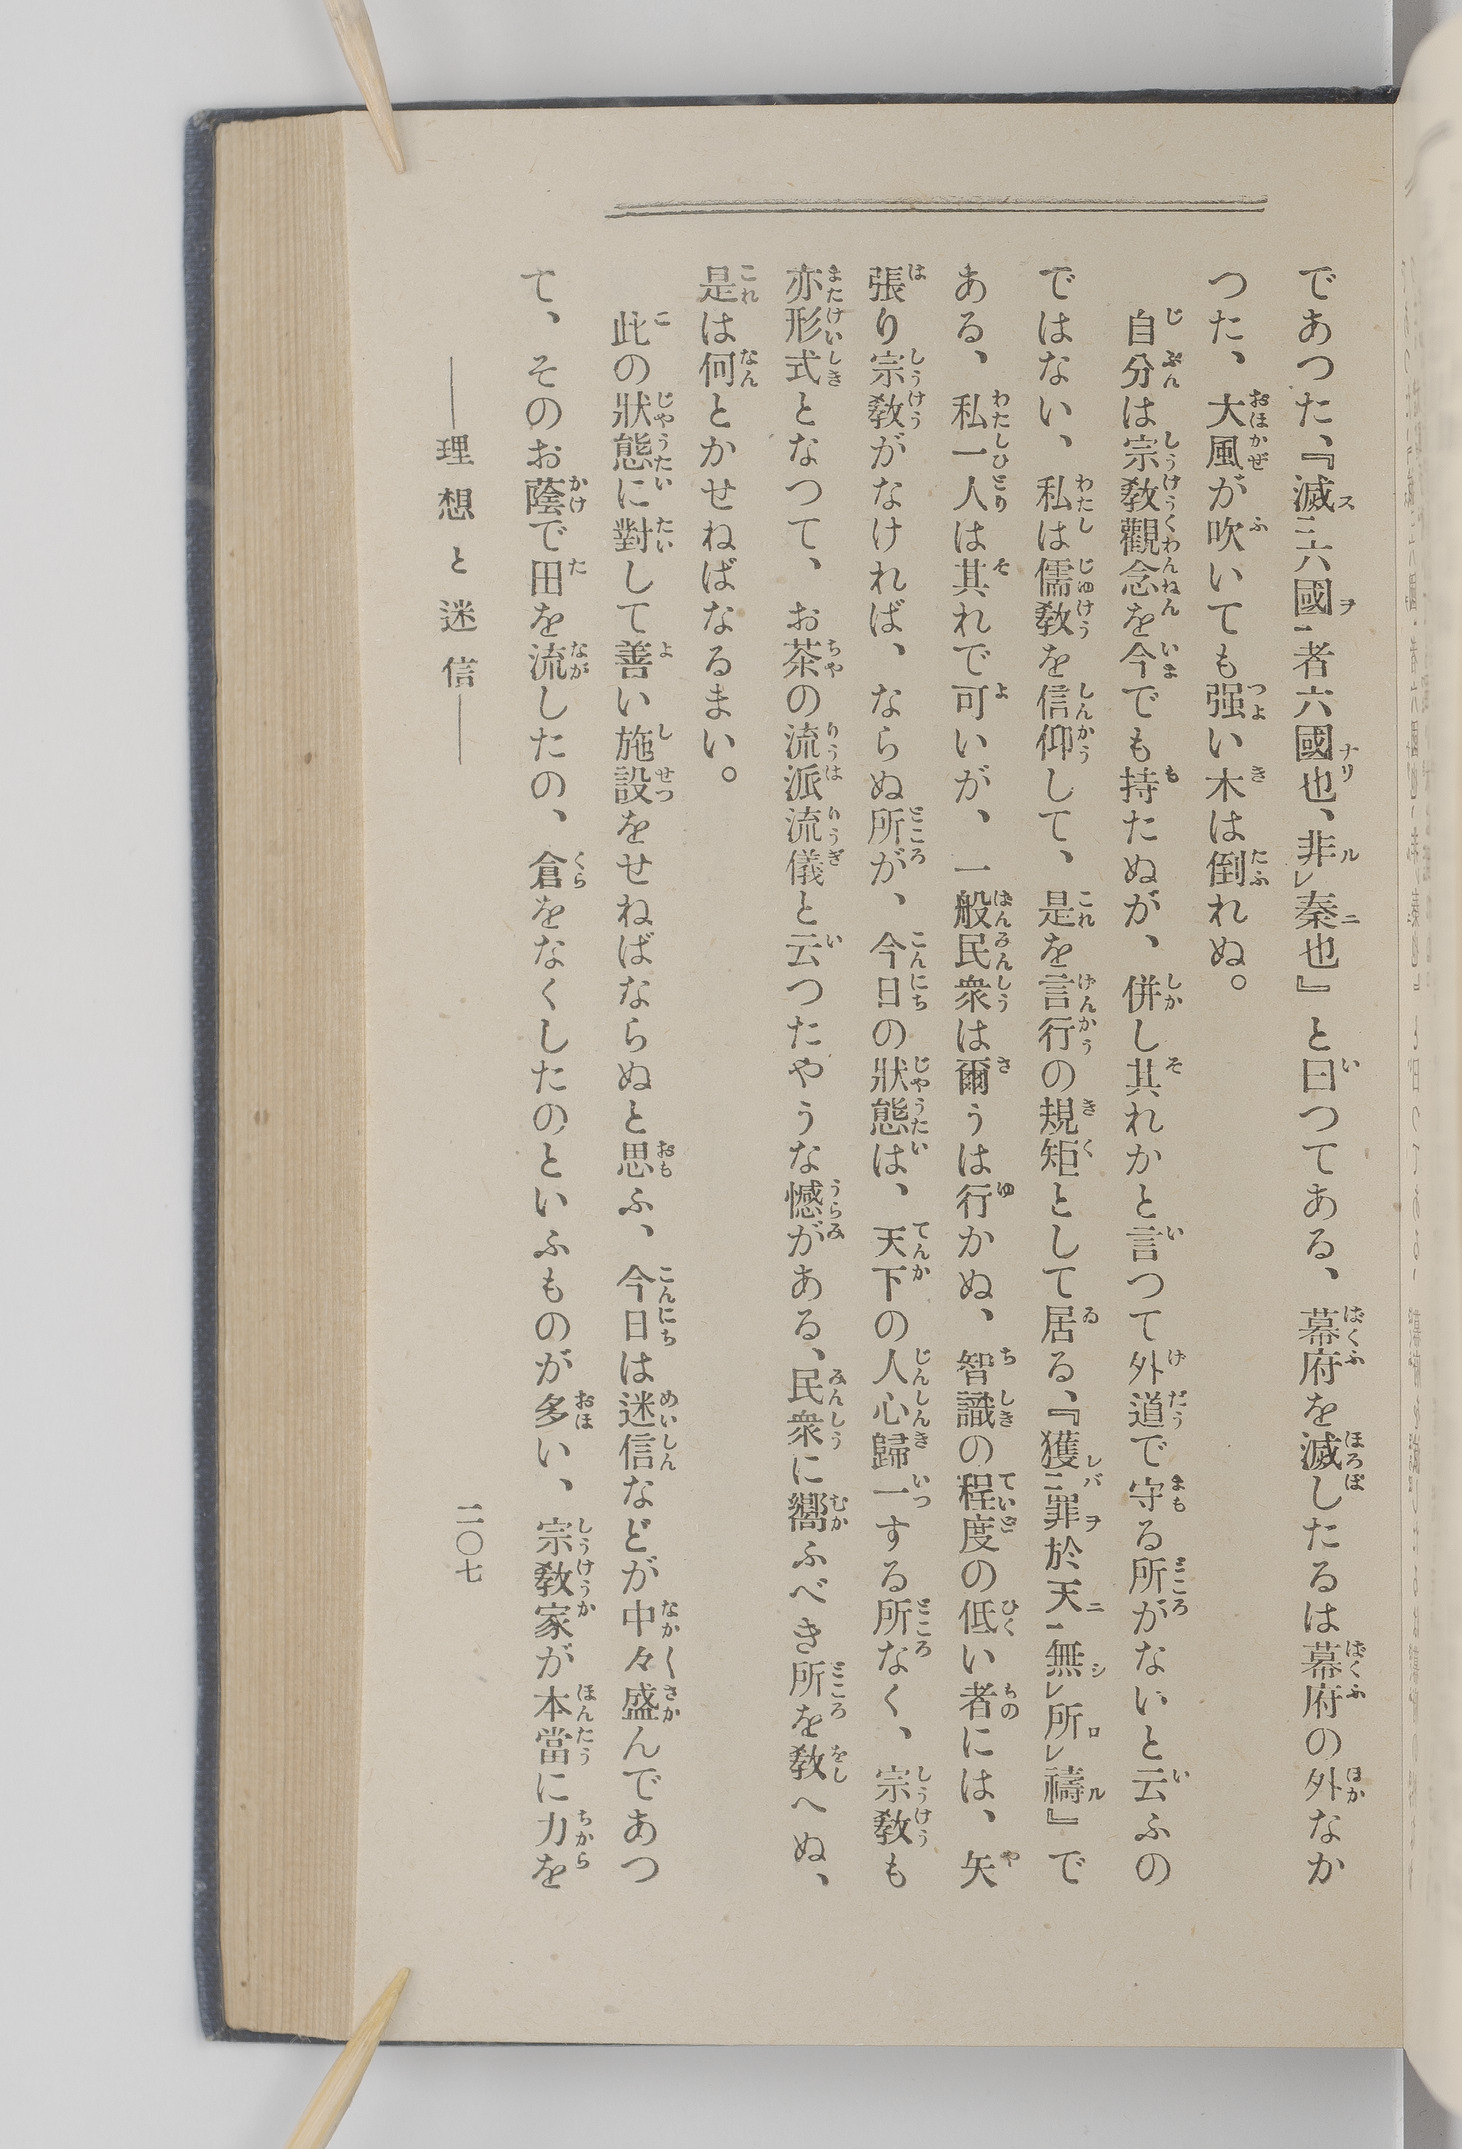 であつた、『滅二六國一者六國也、非レ秦也』と曰つてある、幕府を滅したるは幕府の外なか
つた、大風が吹いても强い木は倒れぬ。
自分は宗敎觀念を今でも持たぬが、併し其れかと言つて外道で守る所がないと云ふの
ではない、私は儒敎を信仰して、是を言行の規矩として居る、『獲二罪於天一無レ所レ禱』で
ある、私一人は其れで可いが、一般民衆は爾うは行かぬ、智識の程度の低い者には、矢
張り宗敎がなければ、ならぬ所が、今日の狀態は、天下の人心歸一する所なく、宗敎も
亦形式となつて、お茶の流派流儀と云つたやうな憾がある、民衆に嚮ふべき所を敎へぬ、
是は何とかせねばなるまい。
此の狀態に對して善い施設をせねばならぬと思ふ、今日は迷信などが中々盛んであつ
て、そのお蔭で田を流したの、倉をなくしたのといふものが多い、宗敎家が本當に力を
――理想と迷信――
二〇七